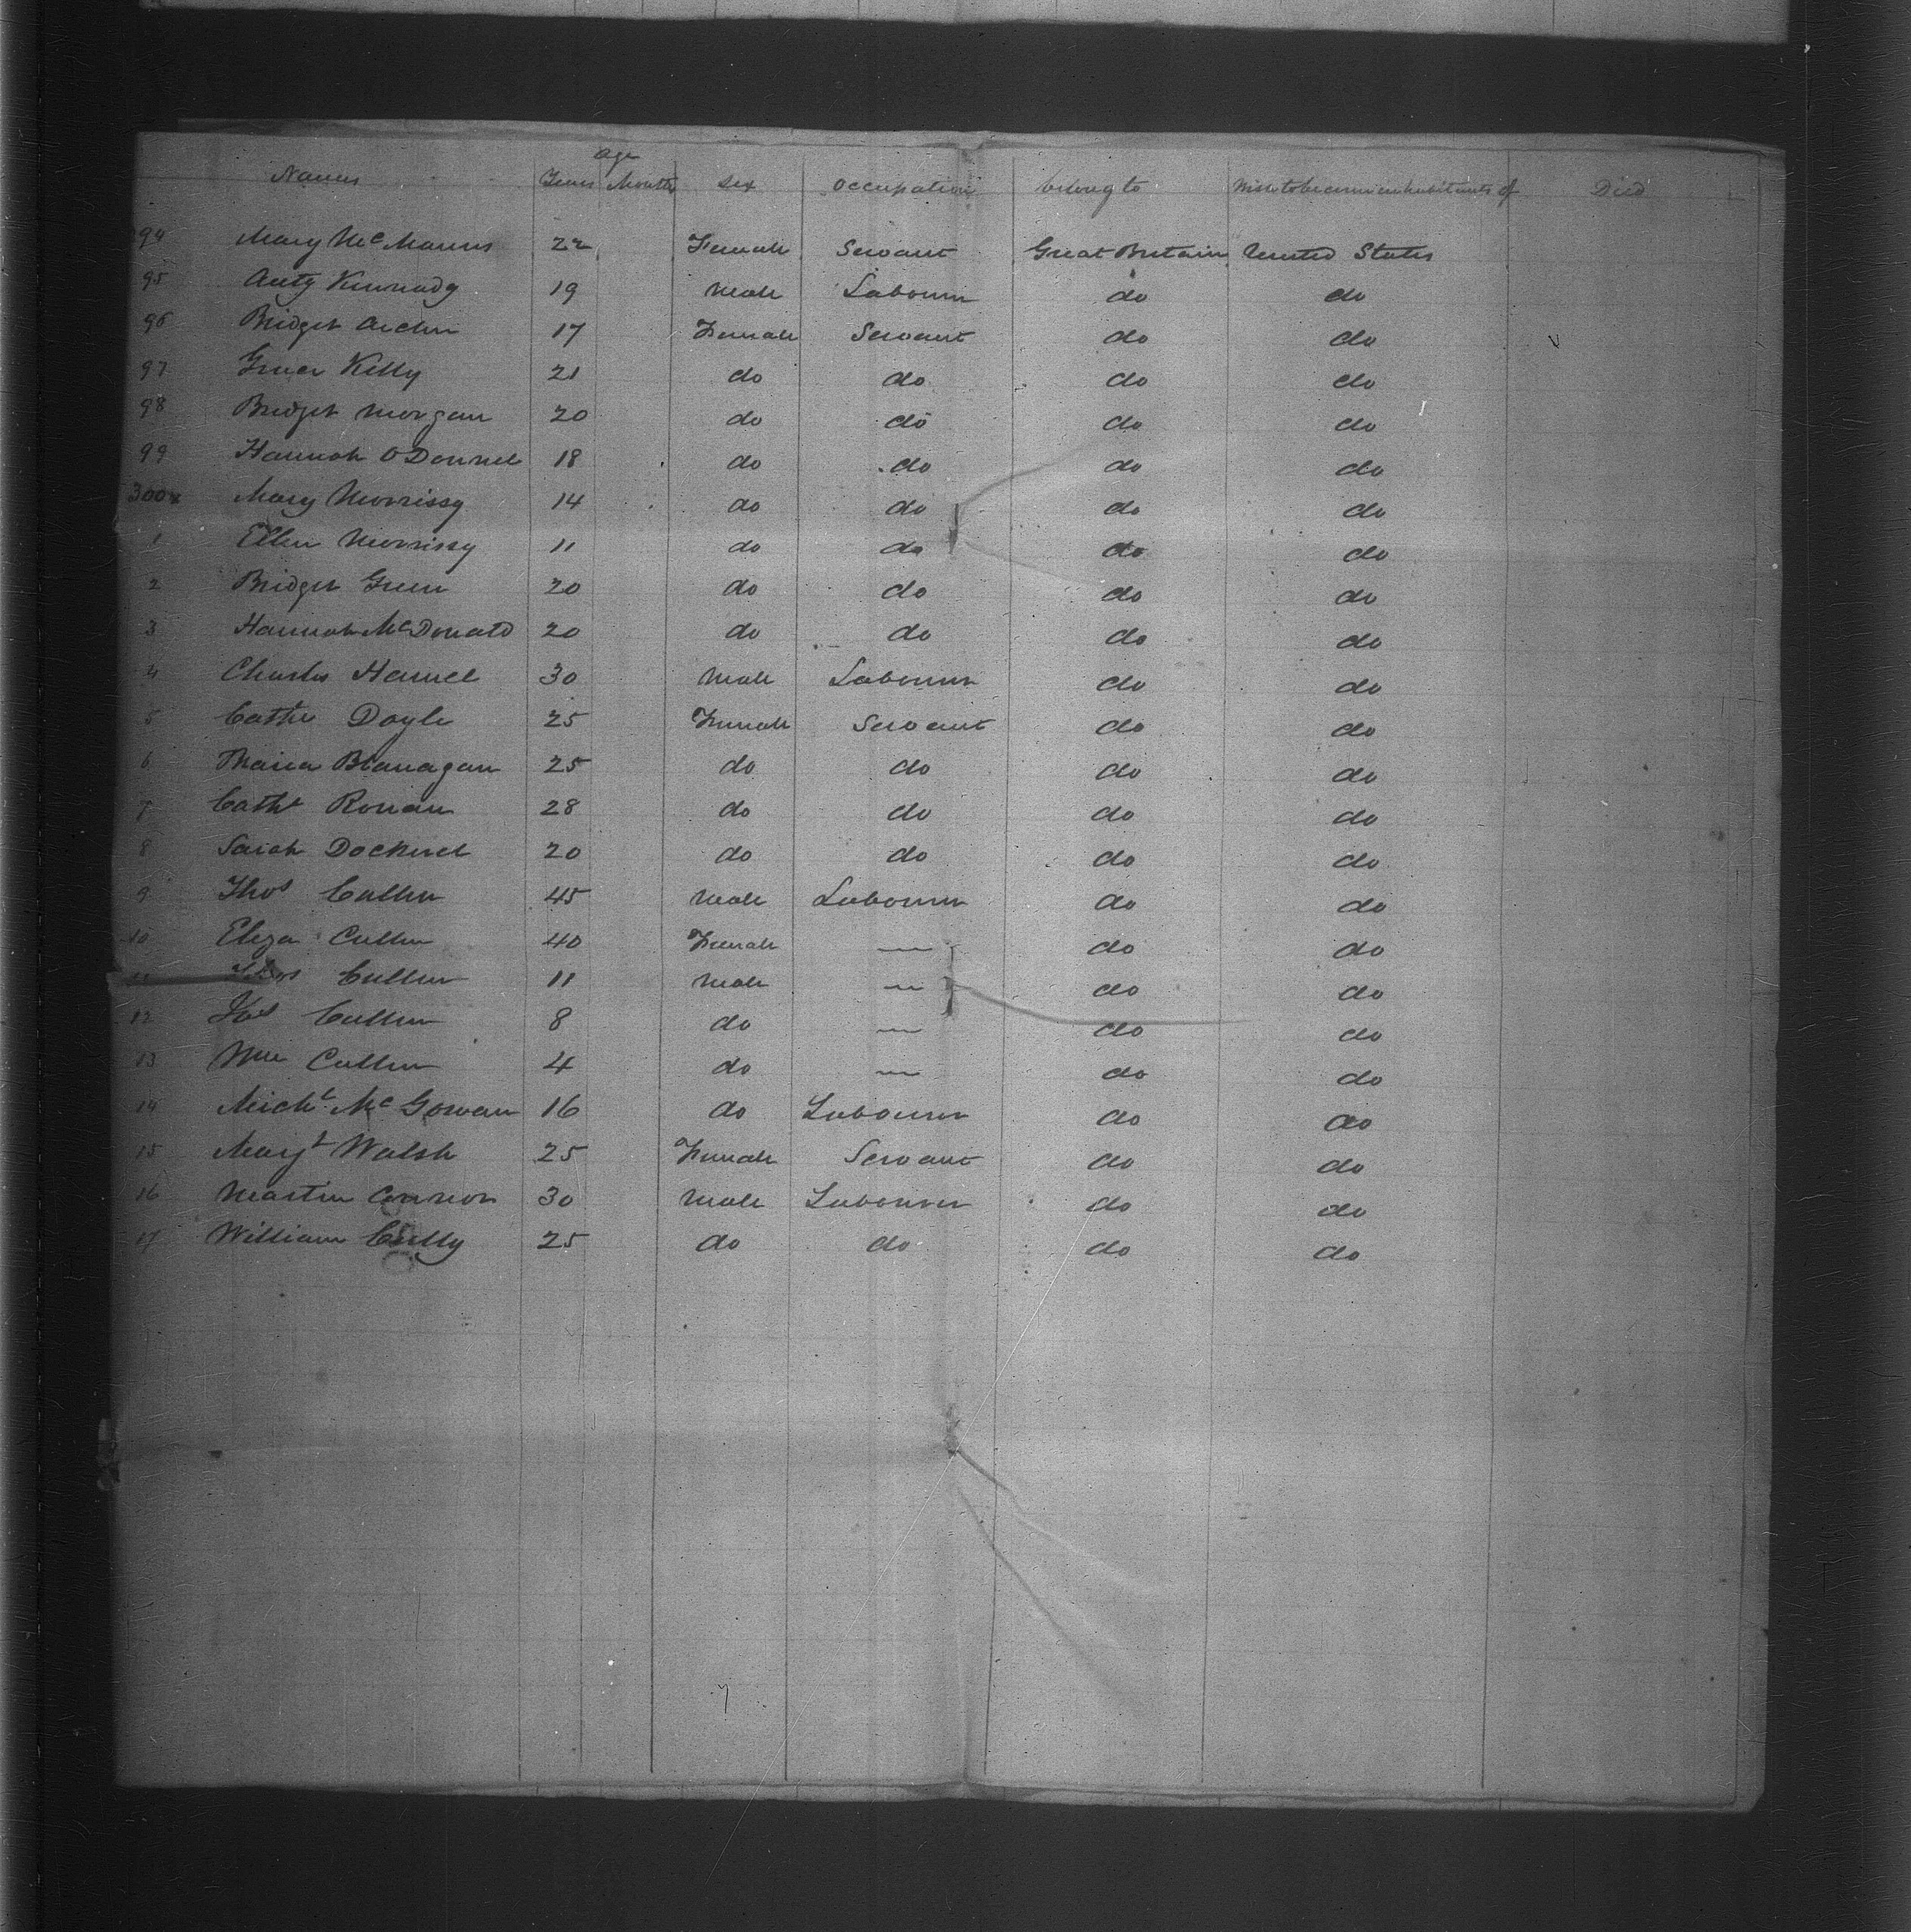 Age
Names Years Months Sex Occupation belong to Wish to become inhabitants of Died
94 Mary McManus 22 Female Servant Great Britain United States
95 Anty Kennedy 19 Male Labourer do do
96 Bridget Archer 17 Female Servant do do
97 Grace Kelly 21 do do do do
98 Bridget Morgan 20 do do do do
99 Hannah O Donnel 18 do do do do
300 Mary Morrissy 14 do do do do
1 Ellen Morrissy 11 do do do do
2 Bridget Green 20 do do do do
3 Hannah McDonald 20 do do do do
4 Charles Hamel 30 Male Labourer do do
5 Cathe Doyle 25 Female Servant do do
6 Maria Blanagan 25 do do do do
7 Cathe Ronan 28 do do do do
8 Sarah Dockerel 20 do do do do
9 Thos Cullen 45 Male Labourer do do
10 Eliza Cullen 40 Female — do do
11 Thos Cullen 11 Male — do do
12 Jas Cullen 8 do — do do
13 Wm Cullen 4 do — do do
14 Michl McGowan 16 do Labourer do do
15 Margt Walsh 25 Female Servant do do
16 Martin Connor 30 Male Labourer do do
17 William Cully 25 do do do do